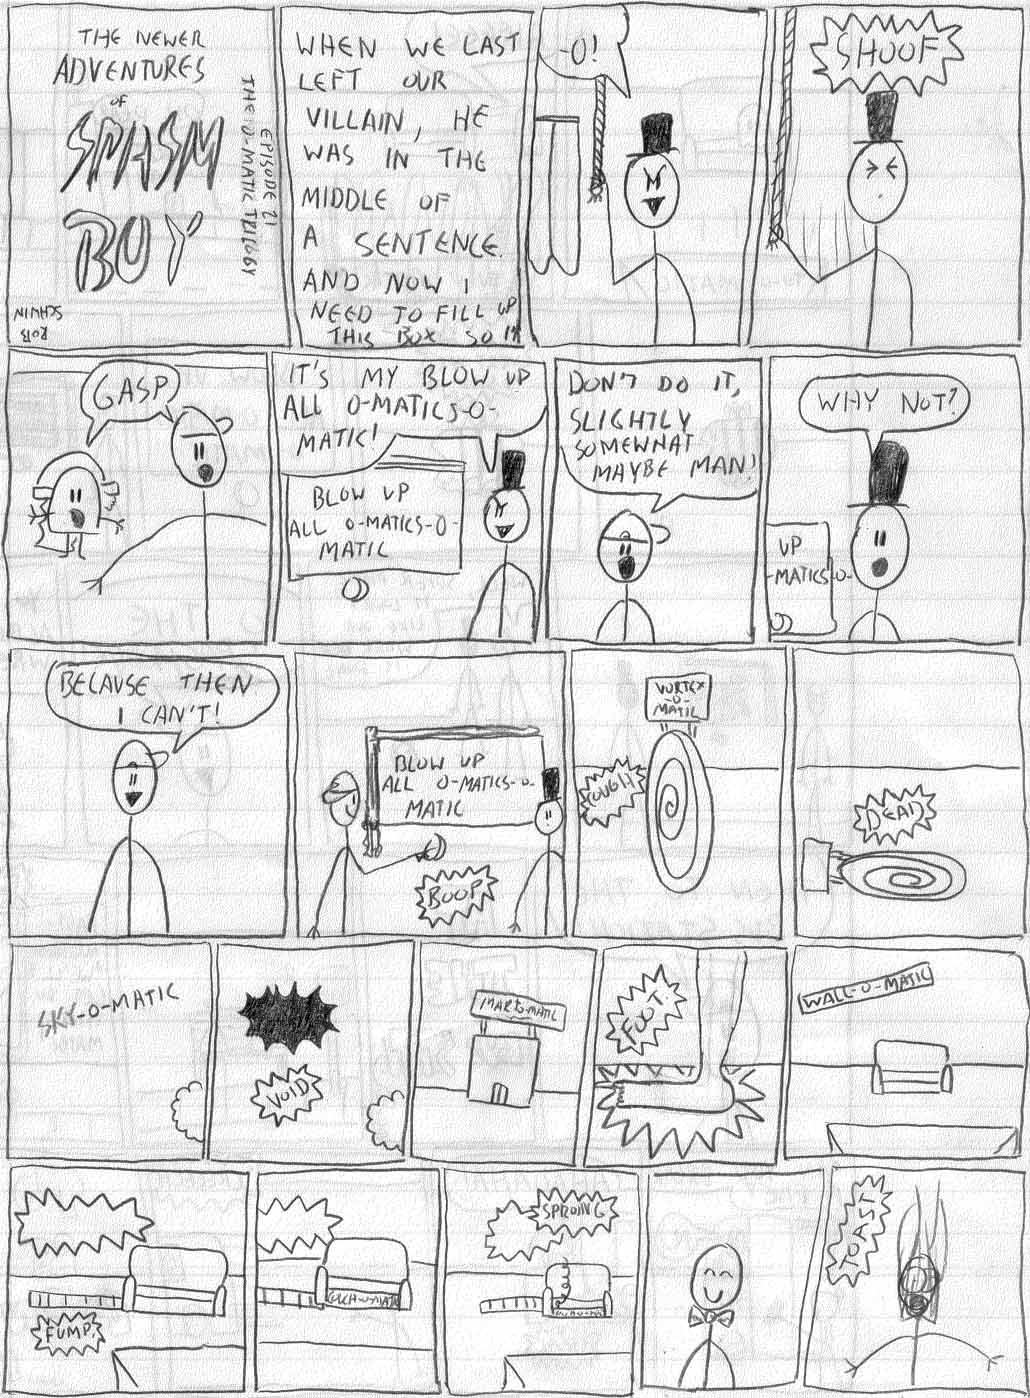 THE NEWER
ADVENTURES
OF
SPASM
BOY
EPISODE 21
THE O-MATIC TRILOGY
ROB
SCHWIN
WHEN WE LAST
LEFT OUR
VILLAIN, HE
WAS IN THE
MIDDLE OF
A SENTENCE.
AND NOW I
NEED TO FILL UP
THIS BOX SO I'
-O!
SHOOF
GASP
IT'S MY BLOW UP
ALL O-MATICS-O-
MATIC!
BLOW UP
ALL O-MATICS-O-
MATIC
DON'T DO IT,
SLIGHTLY
SOMEWHAT
MAYBE MAN!
WHY NOT?
UP
-MATICS-O-
BECAUSE THEN
I CAN'T!
BLOW UP
ALL O-MATICS-O-
MATIC
BOOP
VORTEX
-O-
MATIC
COUGH
DEAD
SKY-O-MATIC
VOID
MART-O-MATIC
FOOT
WALL-O-MATIC
FUMP
COUCH-O-MATIC
SPROING
TOAST